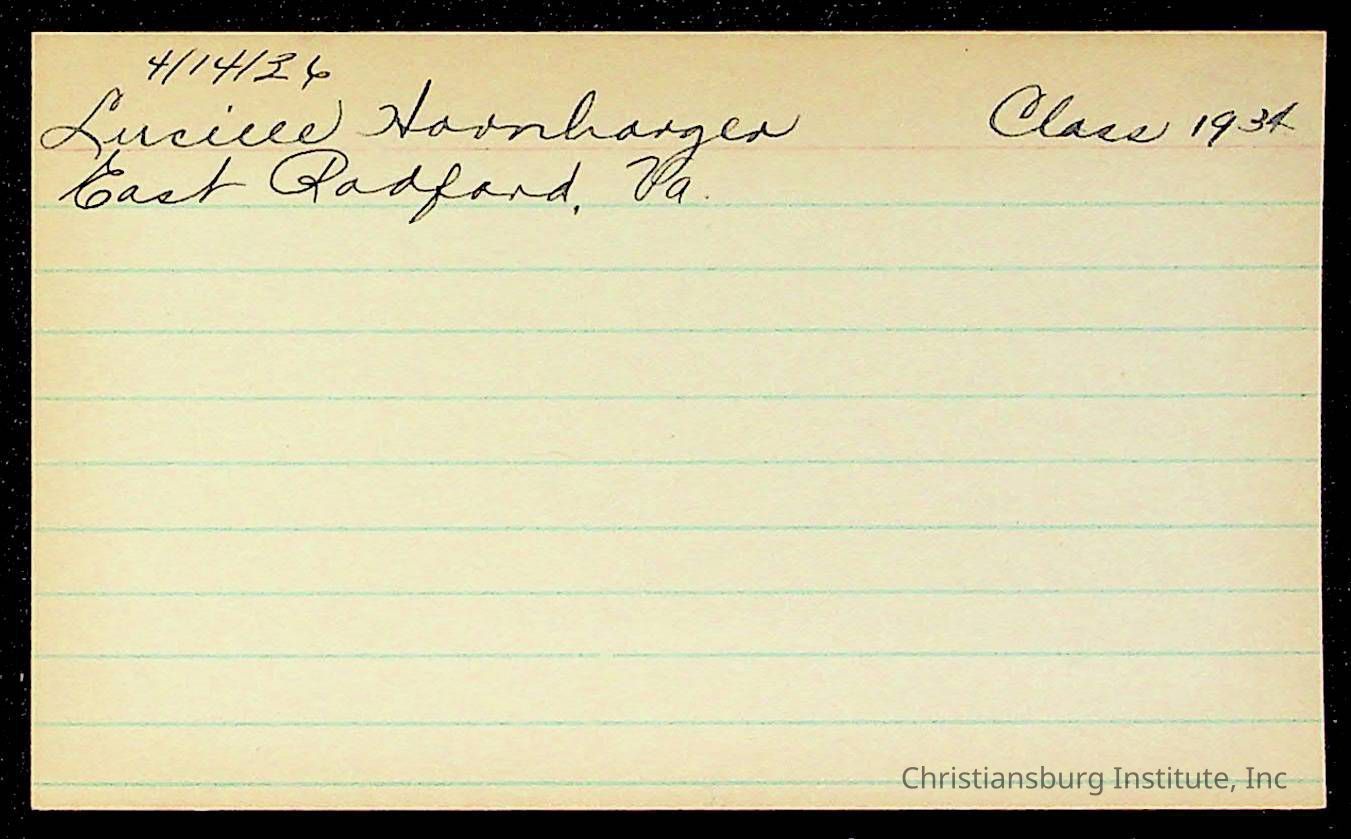 4/14/36
Lucille Hornbarger Class 1934
East Radford, Va.
Christiansburg Institute, Inc